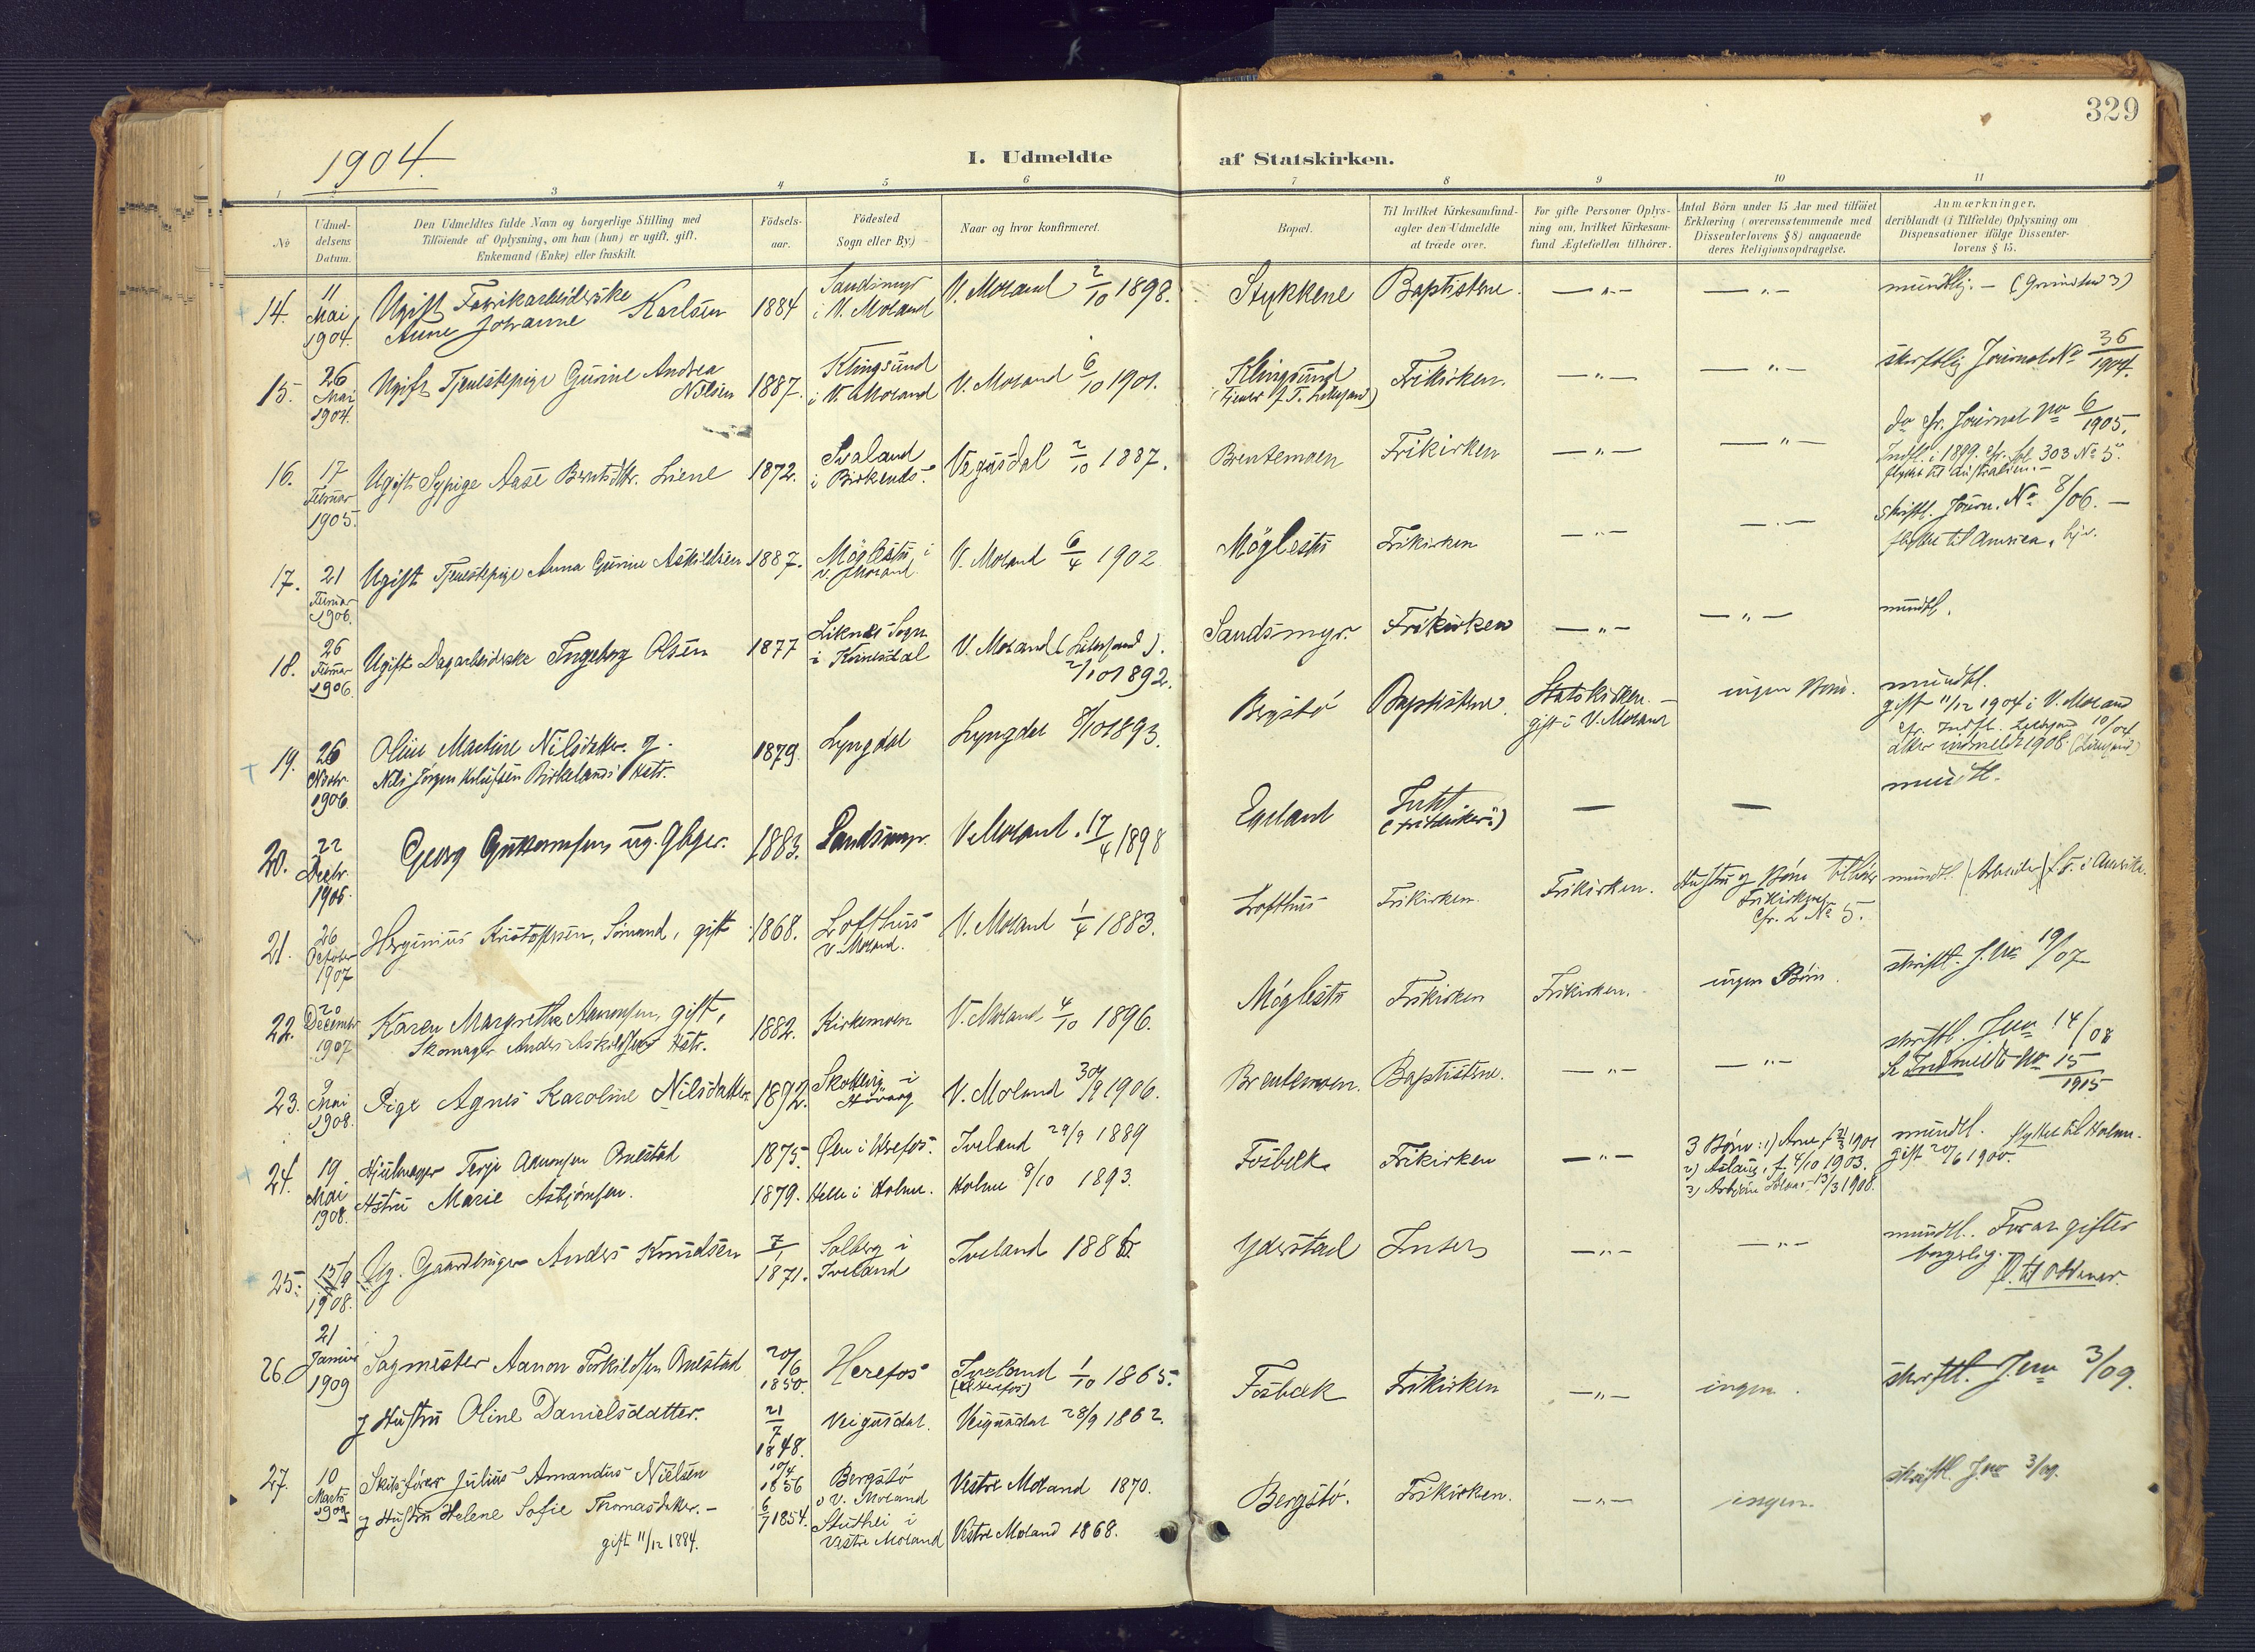 329
1904.
I. Udmeldte af Statskirken.
1 2 3 4 5 6 7 8 9 10 11
No
Udmel-
delsens
Datum.
Den Udmeldtes fulde Navn og borgerlige Stilling med
Tilföiende af Oplysning, om han (hun) er ugift, gift,
Enkemand (Enke) eller fraskilt.
Födsels-
aar.
Födested
Sogn eller By)
Naar og hvor konfirmeret.
Bopæl.
Til hvilket Kirkesamfund-
agter den Udmeldte
at træde over.
For gifte Personer Oplys-
ning om, hvilket Kirkesam-
fund Ægtefællen tilhörer.
Antal Börn under 15 Aar med tilföiet
Erklæring (overensstemmende med
Dissenterlovens § 8) angaaende
deres Religionsopdragelse.
Anmærkninger,
deriblandt (i Tilfælde) Oplysning om
Dispensationer ifölge Dissenter-
lovens § 15.
14. 11 Mai 1904. Ugift Fabrikarbeiderske
Anne Johanne Karlsen 1884 Sandsmyr
i V. Moland V. Moland 2/10 1898. Stykkene Baptisterne. — " — — " — mundtlig. — (Grimstad)
15. 26 Mai 1904. Ugift Tjenestepige Gurine Andrea
Nilsen 1887. Klingsund
i V. Moland V. Moland 6/10 1901. Klingsund
Frikirken. — " — — " — skriftlig Journal No 36/1904.
16. 17 Februar 1905. Ugift Sypige Aase Berntsdtr. Liene 1872. Svaland
i Birkenes Vegusdal 2/10 1887. Brentemoen Frikirken — " — — " — do cfr. Journal No 6/1905.
Indfl. i 1899. cfr. fol. 303 No 5.
flyttet til Australien. —
17. 21 Februar 1906. Ugift Tjenestepige Anna Gurine Askildsen 1887. Möglestu i
V. Moland V. Moland 6/4 1902 Möglestu Frikirken — " — — " — skriftl. Journ. No 8/06. —
flyttet til America
18. 26 Februar 1906. Ugift Dagarbeiderske Ingeborg Olsen 1877 Liknes Sogn
i Kvinesdal V. Moland (Lillesand).
2/10 1892. Sandsmyr. Frikirken — " — — " — mundtl.
19. 26 Novbr. 1906. Oline Martine Nilsdatter. g.
Nils Jörgen Birkelands Hstr. 1879. Lyngdal Lyngdal 8/10 1893. Bergstö Baptisterne. Statskirken. —
gift i V. Moland ingen Börn. mundtl.
gift 11/12 1904 i V. Moland
cfr. Indfl. Lillesand 10/04
atter indmeldt 1908. (Lillesand)
20. 22 Decbr. 1906. Georg Guttormsen, ug. 1883. Sandsmyr. V. Moland. 17/4 1898 Egeland Intet
("fritænker") — — mundtl.
21. 26 October 1907 Herginius Kristoffersen, Sömand, gift 1868. Lofthus
V. Moland. V. Moland 1/4 1883. Lofthus Frikirken. Frikirken. Hustru og Börn tilhör
Frikirken
Cfr. L No 5. mundtl. (Arbeider) i Amerika.
22. 20 December 1907 Karen Margrethe Aanonsen, gift,
Skomager Anders Askildsens Hstr. 1882. Kirkemoen V. Moland 4/10 1896. Möglestu Frikirken Frikirken. ingen Börn. skriftl. J. No 19/07
23. 9 Mai 1908. Pige Agnes Karoline Nilsdatter 1892. i
Hövaag V. Moland 30/9 1906. Brentemoen. Baptisterne. — " — — " — skriftl. J. no 14/08
Se Indmeldte No 15/1915
24. 19 Mai 1908. Hjulmager Terje Aanonsen Ønestad 1875. Øen i Herefos. Iveland 29/9 1889
Hstru Marie Asbjörnsen. 1879. Helle i Holme. Holme 8/10 1893. Fosbæk Frikirken — " — 3 Börn: 1) Arne f. 31/3 1901
2) Aslaug, f. 4/10 1903.
3) Asbjörn 13/3 1908. mundtl. flyttet til Holme.
gift 20/6 1900.
25. 15/9 1908. Ug. Gaardbruger Anders Knudsen 7/1 1871. Solberg i
Iveland Iveland 1886. Ydrestad Intet — " — — " — mundtl. Foran giftes
borgerlig.
fl. til Oddernes.
26 21 Januar 1909 Sagmester Aanon Torkildsen Ønestad 20/6 1850. Herefos Iveland 1/10 1865.
(Herefos) Fosbæk Frikirken — " — ingen. skriftl. J. no 3/09.
g Hustru Oline Danielsdatter. 21/7 1848. Veigusdal. Veigusdal 28/9 1862.
27. 10 Marts 1909 Skibsförer Julius Amandus Nielsen 10/4 1856 Bergstö
i V. Moland Vestre Moland 1870. Bergstö. Frikirken. — " — ingen. skriftl. J. no 3/09.
g Hustru Helene Sofie Thomasdatter. — 6/7 1854. i
Vestre Moland Vestre Moland 1868.
gift 11/12 1884.